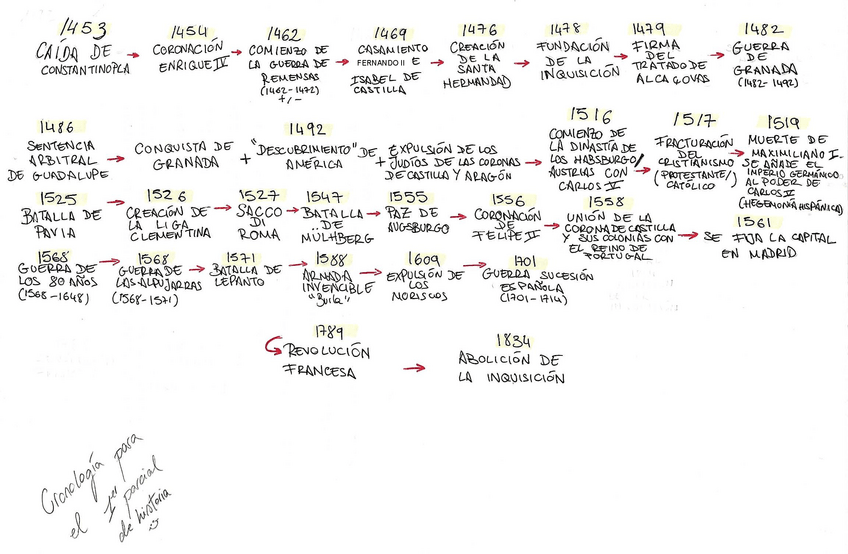 1453
CAÍDA DE
CONSTANTINOPLA
1454
CORONACIÓN
ENRIQUE IV
1462
COMIENZO DE
LA GUERRA DE
REMENSAS
(1462-1472)
+/-
1469
CASAMIENTO
FERNANDO II E
ISABEL DE
CASTILLA
1476
CREACIÓN
DE LA
SANTA
HERMANDAD
1478
FUNDACIÓN
DE LA
INQUISICIÓN
1479
FIRMA
DEL
TRATADO DE
ALCAÇOVAS
1482
GUERRA
DE
GRANADA
(1482-1492)
1486
SENTENCIA
ARBITRAL
DE GUADALUPE
1492
CONQUISTA DE
GRANADA
+ "DESCUBRIMIENTO" DE
AMÉRICA
+ EXPULSIÓN DE LOS
JUDÍOS DE LAS CORONAS
DE CASTILLA Y ARAGÓN
1516
COMIENZO DE
LA DINASTÍA DE
LOS HABSBURGO/
AUSTRIAS CON
CARLOS V
1517
FRACTURACIÓN
DEL
CRISTIANISMO
(PROTESTANTE/
CATÓLICO)
1519
MUERTE DE
MAXIMILIANO I-
SE AÑADE EL
IMPERIO GERMÁNICO
AL PODER DE
CARLOS V
(HEGEMONÍA HISPÁNICA)
1525
BATALLA DE
PAVIA
1526
CREACIÓN DE
LA LIGA
CLEMENTINA
1527
SACCO
DI
ROMA
1547
BATALLA
DE
MÜLHBERG
1555
PAZ DE
AUGSBURGO
1556
CORONACIÓN
DE
FELIPE II
1558
UNIÓN DE LA
CORONA DE CASTILLA
Y SUS COLONIAS CON
EL REINO DE
PORTUGAL
1561
SE FIJA LA CAPITAL
EN MADRID
1568
GUERRA DE
LOS 80 AÑOS
(1568-1648)
1568
GUERRA DE
LAS ALPUJARRAS
(1568-1571)
1571
BATALLA DE
LEPANTO
1588
ARMADA
INVENCIBLE
1609
EXPULSIÓN DE
LOS
MORISCOS
1701
GUERRA SUCESIÓN
ESPAÑOLA
(1701-1714)
1789
REVOLUCIÓN
FRANCESA
1834
ABOLICIÓN DE
LA INQUISICIÓN
Cronología para
el 1er parcial
de historia